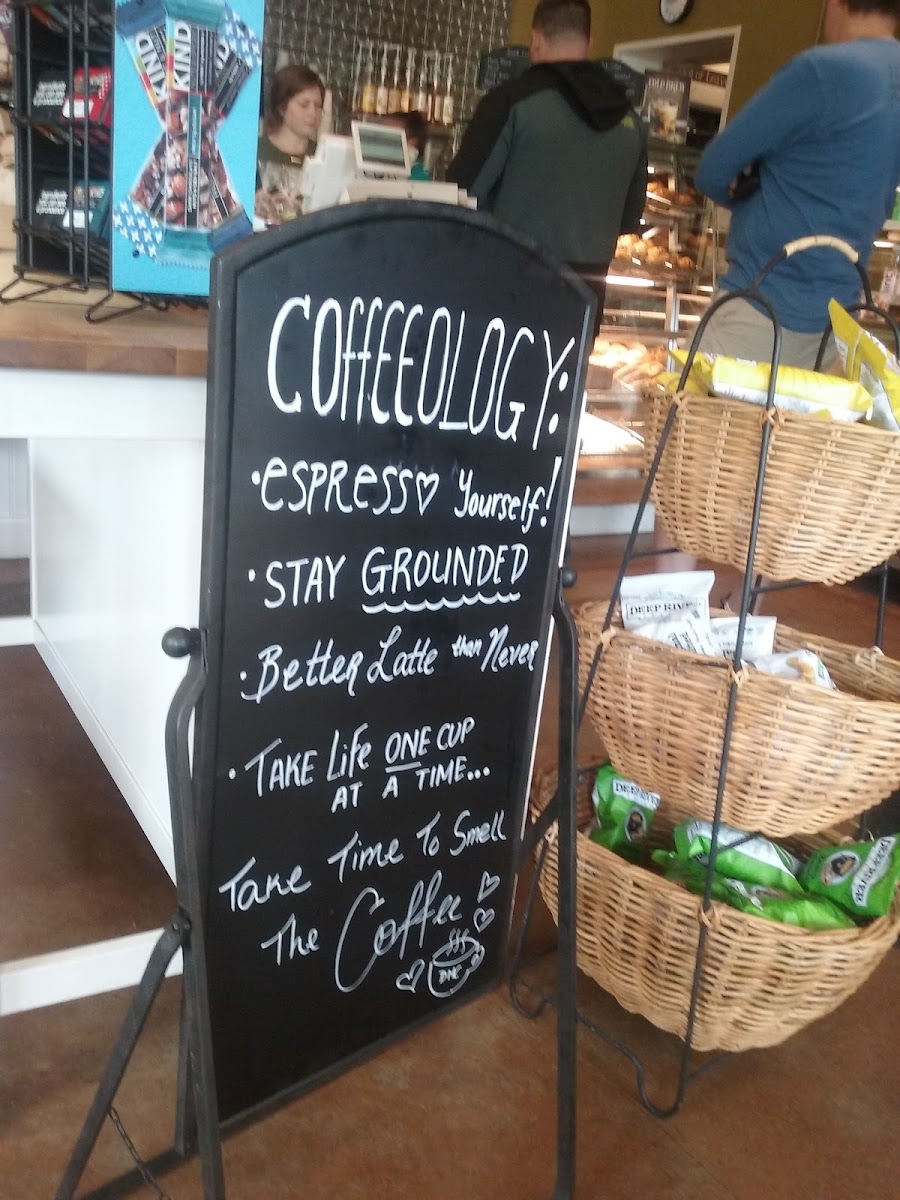 KIND
KIND
COffEEOLOGY:
·ESPRESS♡ Yourself!
·STAY GROUNDED
·Better Latte than Never
·TAKE Life ONE CUP
AT A TIME...
Take Time To Smell
The Coffee
DEEP RIVER
DEEP RIVER